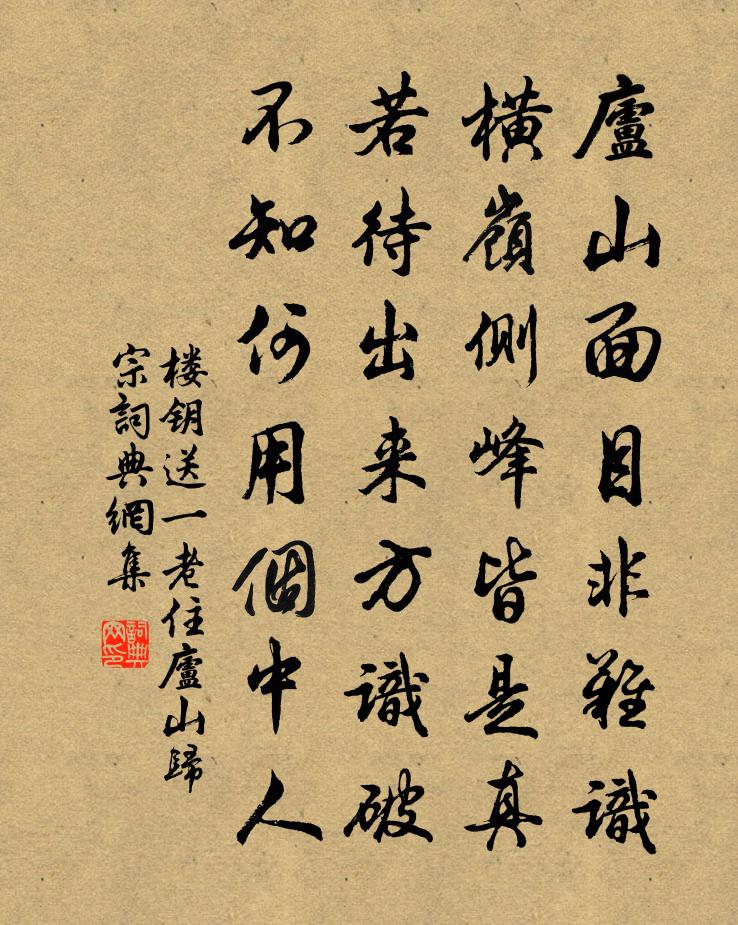 廬山面目非難識
橫嶺側峰皆是真
若待出来方識破
不知何用個中人
楼钥送一老住廬山歸
宗詞典網集
詞典
网印